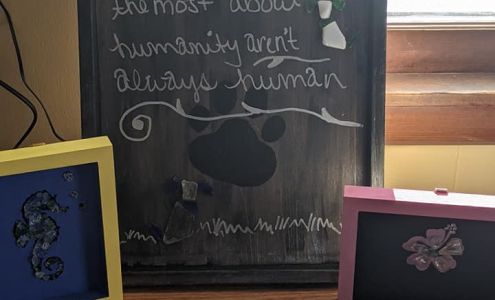 the most about
humanity aren't
always human